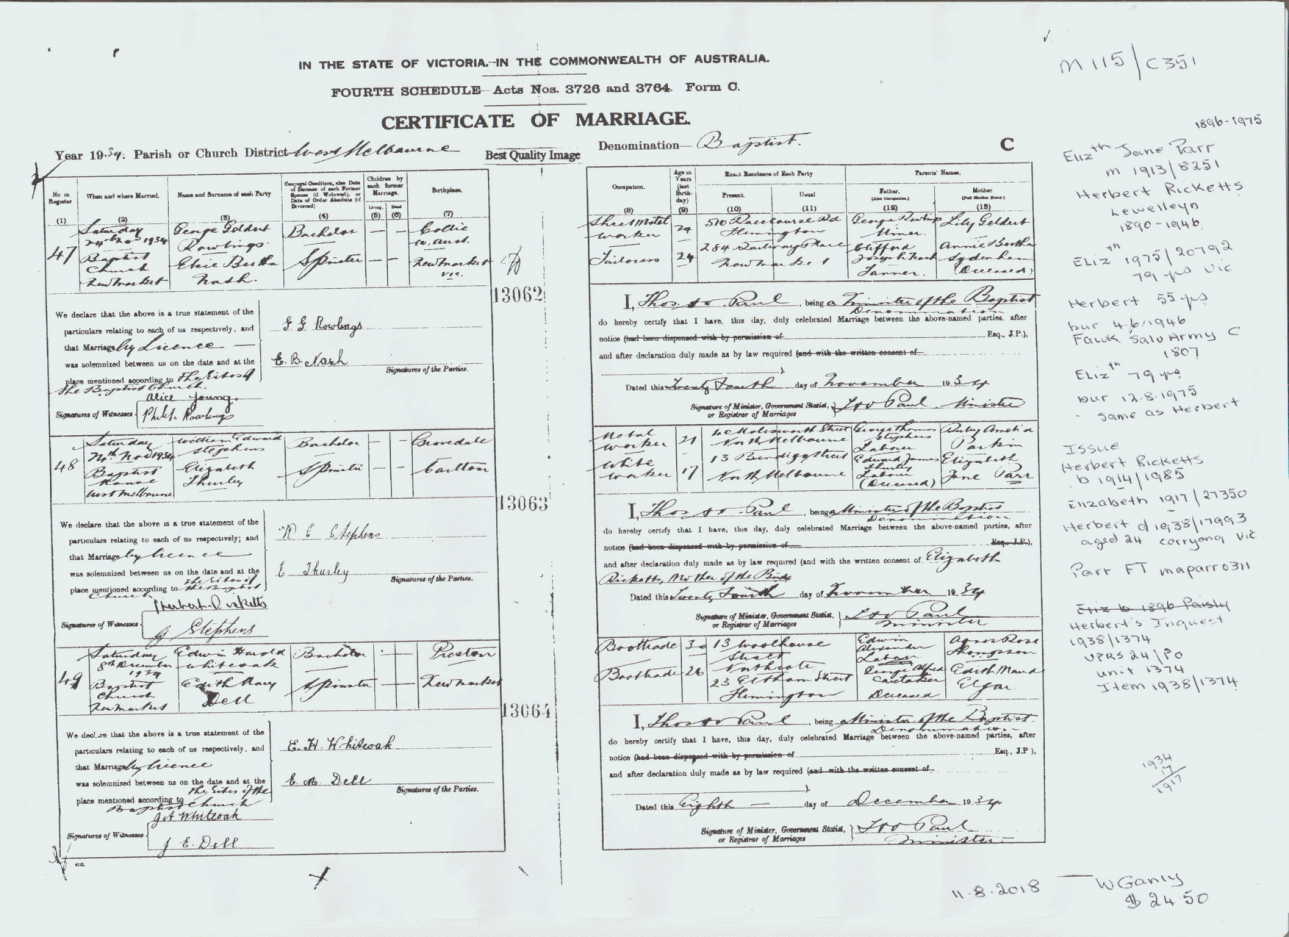 IN THE STATE OF VICTORIA.—IN THE COMMONWEALTH OF AUSTRALIA.
FOURTH SCHEDULE Acts Nos. 3726 and 3764. Form C.
CERTIFICATE OF MARRIAGE.
Year 1934. Parish or Church District West Melbourne
Best Quality Image
Denomination Baptist.
C
No. in Register
When and where Married.
Name and Surname of each Party
Children by each former Marriage.
Birthplace.
Occupation.
Age in Years (last Birthday)
Exact Residence of Each Party
Present.
Usual
Parents' Names.
Father.
Mother
(1) (2) (3) (4) (5) (6) (7)
(8) (9) (10) (11) (12) (13)
47
Saturday
24th Nov 1934
Baptist
Church
Newmarket
George Geldert
Rowlings
Elsie Bertha
Nash.
Bachelor
Spinster
Collie
W. Aust.
Newmarket
Vic.
13062
Sheet Metal
Worker
29
510 Racecourse Rd
Flemington
George Rowlings
Miner
Lily Geldert
Tailoress
24
284 Railway Place
Newmarket
Clifford
Joseph Nash
Tanner.
Annie Bertha
Sydenham
(Deceased)
We declare that the above is a true statement of the
particulars relating to each of us respectively, and
that Marriage by Licence
was solemnized between us on the date and at the
place mentioned according to The Rites of
The Baptist Church.
G G Rowlings
E. B. Nash
Signatures of the Parties.
Signatures of Witnesses
Alice Young.
Philip Rowlings
I, Thos Paul, being a Minister of the Baptist
Denomination
do hereby certify that I have, this day, duly celebrated Marriage between the above-named parties, after
notice (had been dispensed with by permission of Esq., J.P.),
and after declaration duly made as by law required (and with the written consent of
).
Dated this Twenty Fourth day of November 1934
Signature of Minister, Government Statist, or Registrar of Marriages
Paul Minister
48
Saturday
24th Nov 1934
Baptist
Manse
West Melbourne
William Edward
Stephens
Elizabeth
Thurley
Bachelor
Spinster
Carlton
13063
Metal
Worker
21
Molesworth Street
North Melbourne
George Thomas
Stephens
Labor
Ruby Amelia
Parkin
White
Worker
17
13 Bendigo Street
North Melbourne
Edward James
Thurley
(Deceased)
Elizabeth
Jane Parr
We declare that the above is a true statement of the
particulars relating to each of us respectively; and
that Marriage by licence
was solemnized between us on the date and at the
place mentioned according to the Rites of
the Baptist
Church
W E Stephens
E Thurley
Signatures of the Parties.
Signatures of Witnesses
Herbert Ricketts
G Stephens
I, Thos Paul, being a Minister of the Baptist
Denomination
do hereby certify that I have, this day, duly celebrated Marriage between the above-named parties, after
notice (had been dispensed with by permission of Esq., J.P.),
and after declaration duly made as by law required (and with the written consent of Elizabeth
Ricketts, Mother of the Bride
Dated this Twenty Fourth day of November 1934
Signature of Minister, Government Statist, or Registrar of Marriages
Paul
Minister
49
Saturday
8th December
1934
Baptist
Church
Newmarket
Edwin Harold
Whitcoak
Edith Mary
Dell
Bachelor
Spinster
Preston
Newmarket
13064
Boottrade
30
13 Woolhouse
Street
Northcote
Edwin
Alexander
Labor
Agnes Rose
Thompson
Boottrade
26
23 Eltham Street
Flemington
George Alfred
Caretaker
Deceased
Edith Maud
Elgar
We declare that the above is a true statement of the
particulars relating to each of us respectively, and
that Marriage by licence
was solemnized between us on the date and at the
place mentioned according to the Rites of the
Baptist Church
E. H. Whitcoak
E M Dell
Signatures of the Parties.
Signatures of Witnesses
J A Whitcoak
J. E. Dell
I, Thos Paul, being a Minister of the Baptist
Denomination
do hereby certify that I have, this day, duly celebrated Marriage between the above-named parties, after
notice (had been dispensed with by permission of Esq., J.P.),
and after declaration duly made as by law required (and with the written consent of
).
Dated this Eighth day of December 1934
Signature of Minister, Government Statist, or Registrar of Marriages
Paul
Minister
M 115/C351
1896-1975
Elizth Jane Parr
m 1913/8251
Herbert Ricketts
Lewelleyn
1890-1946.
Elizth 1975/20792
79 yrs Vic
Herbert 55 yrs
bur 4.6.1946
Fawk Salv Army C
1807
Elizth 79 yrs
bur 12.8.1975
same as Herbert
Issue
Herbert Ricketts
b 1914/1985
Elizabeth 1917/27350
Herbert d 1938/17993
aged 24 Corryong Vic
Parr FT maparr0311
Eliz b 1896 Paisly
Herbert's Inquest
1938/1374
VPRS 24/P0
unit 1374
Item 1938/1374
1934
17
1917
11-8-2018 — W Ganly
$24 50